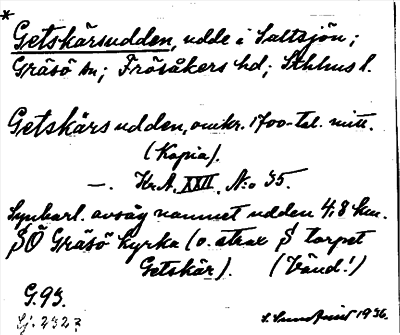 *
Getskärsudden, udde i Saltsjön;
Gräsö sn; Frösåkers hd; Sthlms l.
Getskärsudden, omkr. 1700-tal. mitt.
(Kopia).
—. Kr.A. XXII. N:o 35.
Synbarl. avsåg namnet udden 4,8 km.
SÖ Gräsö kyrka (o. strax S torpet
Getskär). (Vänd!)
G.93.
Lj. 2327
1936.